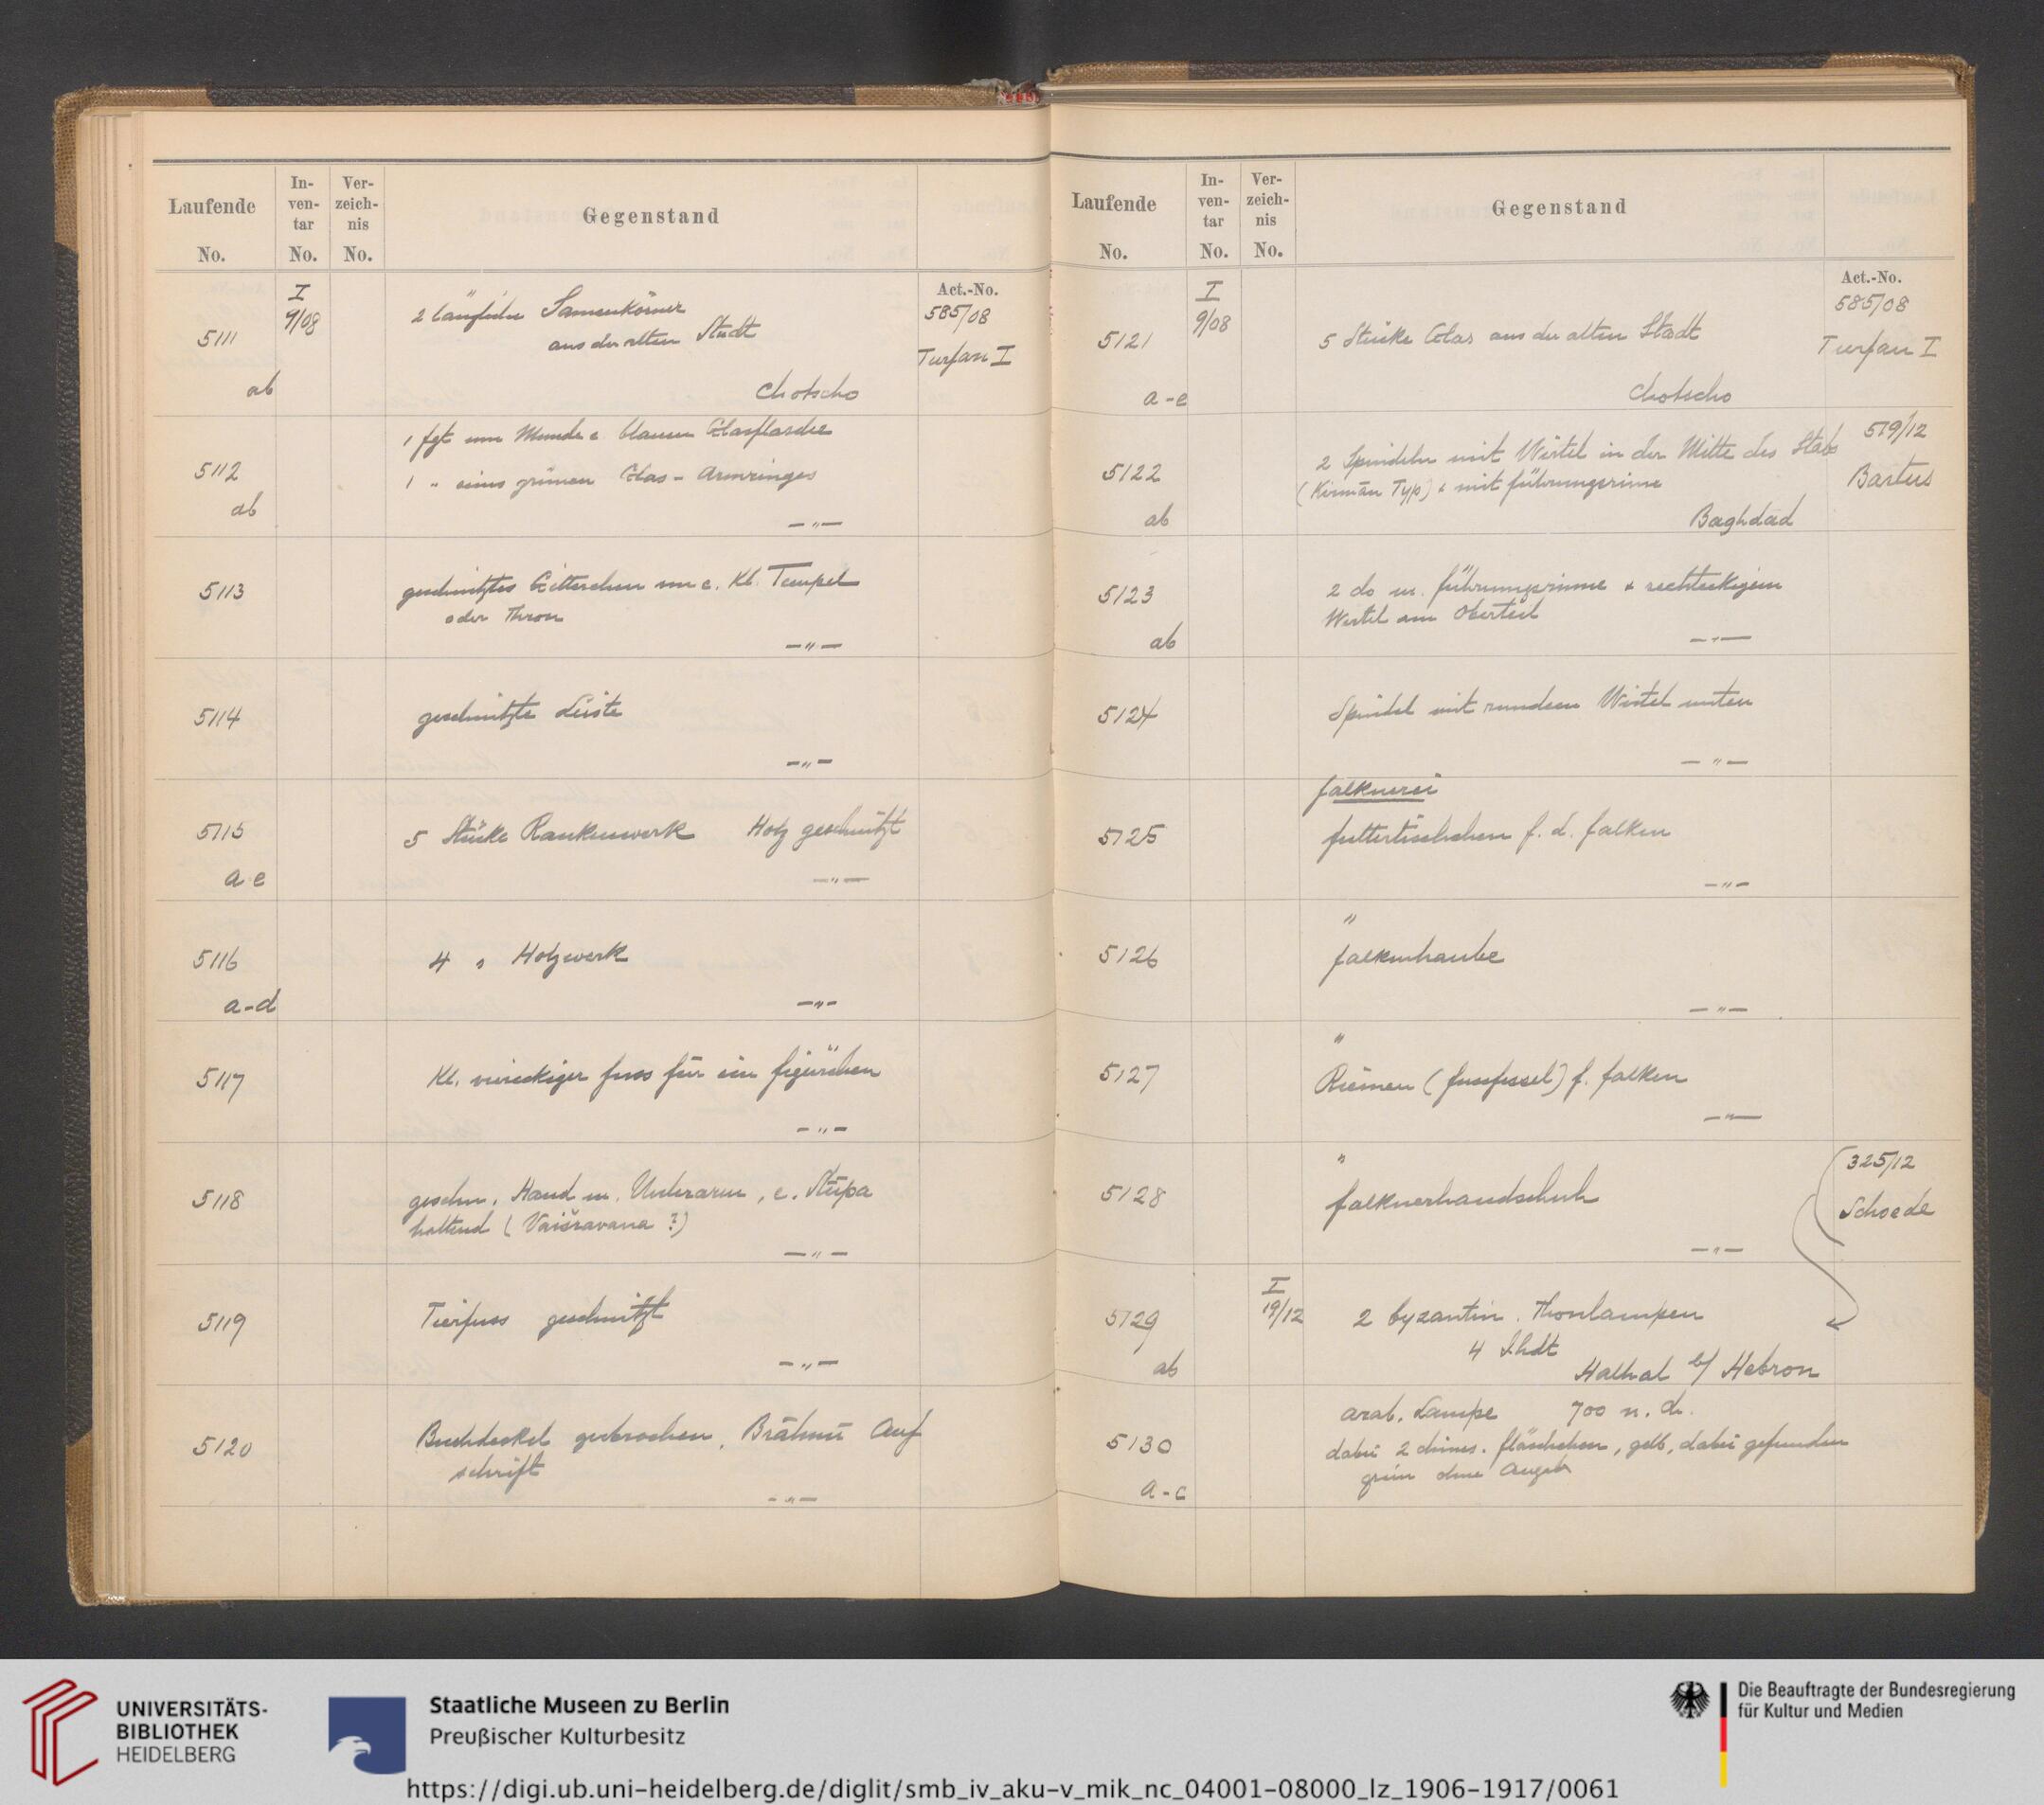 Laufende No.
In-ven-tar No.
Ver-zeich-nis No.
Gegenstand
Act.-No.
5111 ab
I 9/08
2 längliche Samenkörner
aus der alten Stadt
Chotscho
585/08
Turfan I
5112 ab
1 fgt vom Munde e. blauen Glasflasche
1 " eines grünen Glas-Armringes
— " —
5113
geschnitztes Gitterchen von e. Kl. Tempel
oder Thron
— " —
5114
geschnitzte Leiste
— " —
5115 a-e
5 Stücke Rankenwerk Holz geschnitzt
— " —
5116 a-d
4 " Holzwerk
— " —
5117
Kl. viereckiger fuss für ein figürchen
— " —
5118
geschn. Hand m. Unterarm, e. Stūpa
haltend (Vaiśravana ?)
— " —
5119
Tierfuss geschnitzt
— " —
5120
Buchdeckel gebrochen, Brāhmī Auf
schrift
— " —
Laufende No.
In-ven-tar No.
Ver-zeich-nis No.
Gegenstand
Act.-No.
5121 a-e
I 9/08
5 Stücke Glas aus der alten Stadt
Chotscho
585/08
Turfan I
5122 ab
2 Spindeln mit Wirtel in der Mitte des Stabs
(Kirmān Typ) & mit führungsrinne
Baghdad
519/12
Bartus
5123 ab
2 do m. führungsrinne & rechteckigem
Wirtel am Oberteil
— " —
5124
Spindel mit rundem Wirtel unten
— " —
falknerei
5125
futtertischchen f. d. falken
— " —
"
5126
falkenhaube
— " —
"
5127
Riemen (fussfessel) f. falken
— " —
"
5128
falknerhandschuh
— " —
325/12
Schoede
5129 ab
I 19/12
2 byzantin. Thonlampen
4 Jhdt
Halhal b/ Hebron
5130 a-c
arab. Lampe 700 n. Ch.
dabei 2 chines. fläschchen, gelb, dabei gefunden
grün ohne Angab
UNIVERSITÄTS-
BIBLIOTHEK
HEIDELBERG
Staatliche Museen zu Berlin
Preußischer Kulturbesitz
Die Beauftragte der Bundesregierung
für Kultur und Medien
https://digi.ub.uni-heidelberg.de/diglit/smb_iv_aku-v_mik_nc_04001-08000_lz_1906-1917/0061